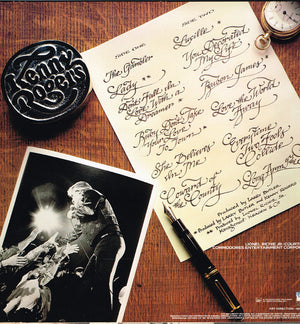 Kenny
Rogers
SIDE ONE
The Gambler
Lady
Don't Fall In
Love With a
Dreamer
Ruby, Don't Take
Your Love
To Town
She Believes
In Me
Coward of
the County
SIDE TWO
Lucille
You Decorated
My Life
Reuben James
Love the World
Away
Every Time
Two Fools
Collide
Long Arm of the Law
Produced by Larry Butler
LIONEL RICHIE JR. COURT
COMMODORES ENTERTAINMENT CORPOR